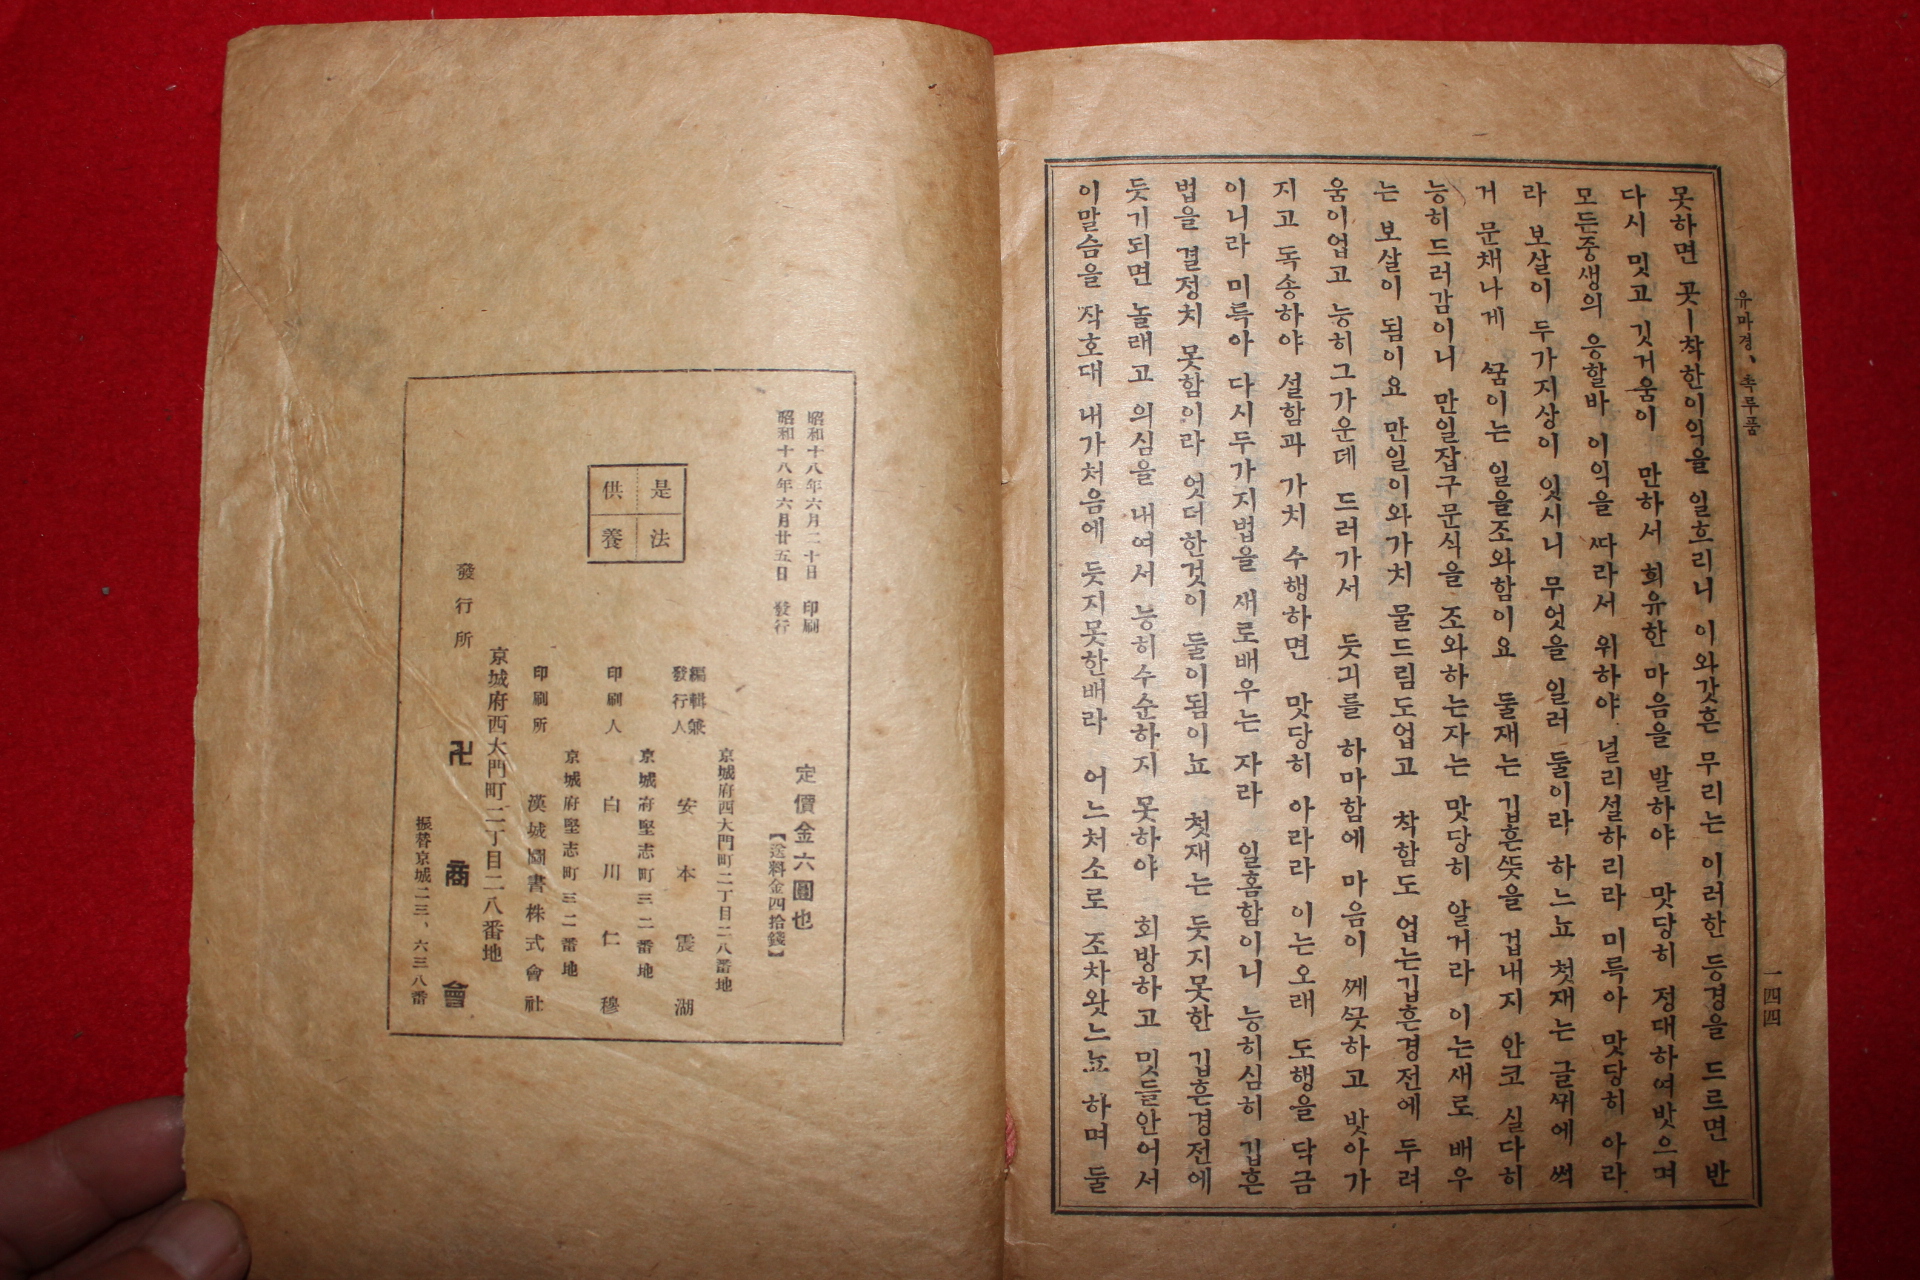 유마경、촉루품
一四四
못하면 곳ㅣ착한이익을 일흐리니 이와갓흔 무리는 이러한 등경을 드르면 반
다시 밋고 깃거움이 만하서 희유한 마음을 발하야 맛당히 정대하여밧으며
모든중생의 응할바 이익을 ᄯᅡ라서 위하야 널리설하리라 미륵아 맛당히 아라
라 보살이 두가지상이 잇시니 무엇을 일러 둘이라 하느뇨 첫재는 글ᄶᅱ에 ᄶᅥᆨ
거 문채나게 ᄭᅮᆷ이는 일을조와함이요 둘재는 깁흔ᄯᅳᆺ을 겁내지 안코 실다히
능히드러감이니 만일잡구문식을 조와하는자는 맛당히 알거라 이는새로 배우
는 보살이 됨이요 만일이와가치 물드림도업고 착함도 업는깁흔경전에 두려
움이업고 능히그가운데 드러가서 듯긔를 하마함에 마음이 ᄭᅦᄭᅳᆺ하고 밧아가
지고 독송하야 설함과 가치 수행하면 맛당히 아라라 이는오래 도행을 닥금
이니라 미륵아 다시두가지법을 새로배우는 자라 일홈함이니 능히심히 깁흔
법을 결정치 못함이라 엇더한것이 둘이됨이뇨 첫재는 듯지못한 깁흔경전에
듯기되면 놀래고 의심을 내여서 능히수순하지 못하야 회방하고 밋들안어서
이말슴을 작호대 내가처음에 듯지못한배라 어느처소로 조차왓느뇨 하며 둘
昭和十八年六月二十日 印刷
昭和十八年六月廿五日 發行
定價金六圓也
【送料金四拾錢】
是法
供養
京城府西大門町二丁目二八番地
編輯兼
發行人 安本震湖
京城府堅志町三二番地
印刷人 白川仁穆
京城府堅志町三二番地
印刷所 漢城圖書株式會社
京城府西大門町二丁目二八番地
發行所 卍商會
振替京城二三、六三八番